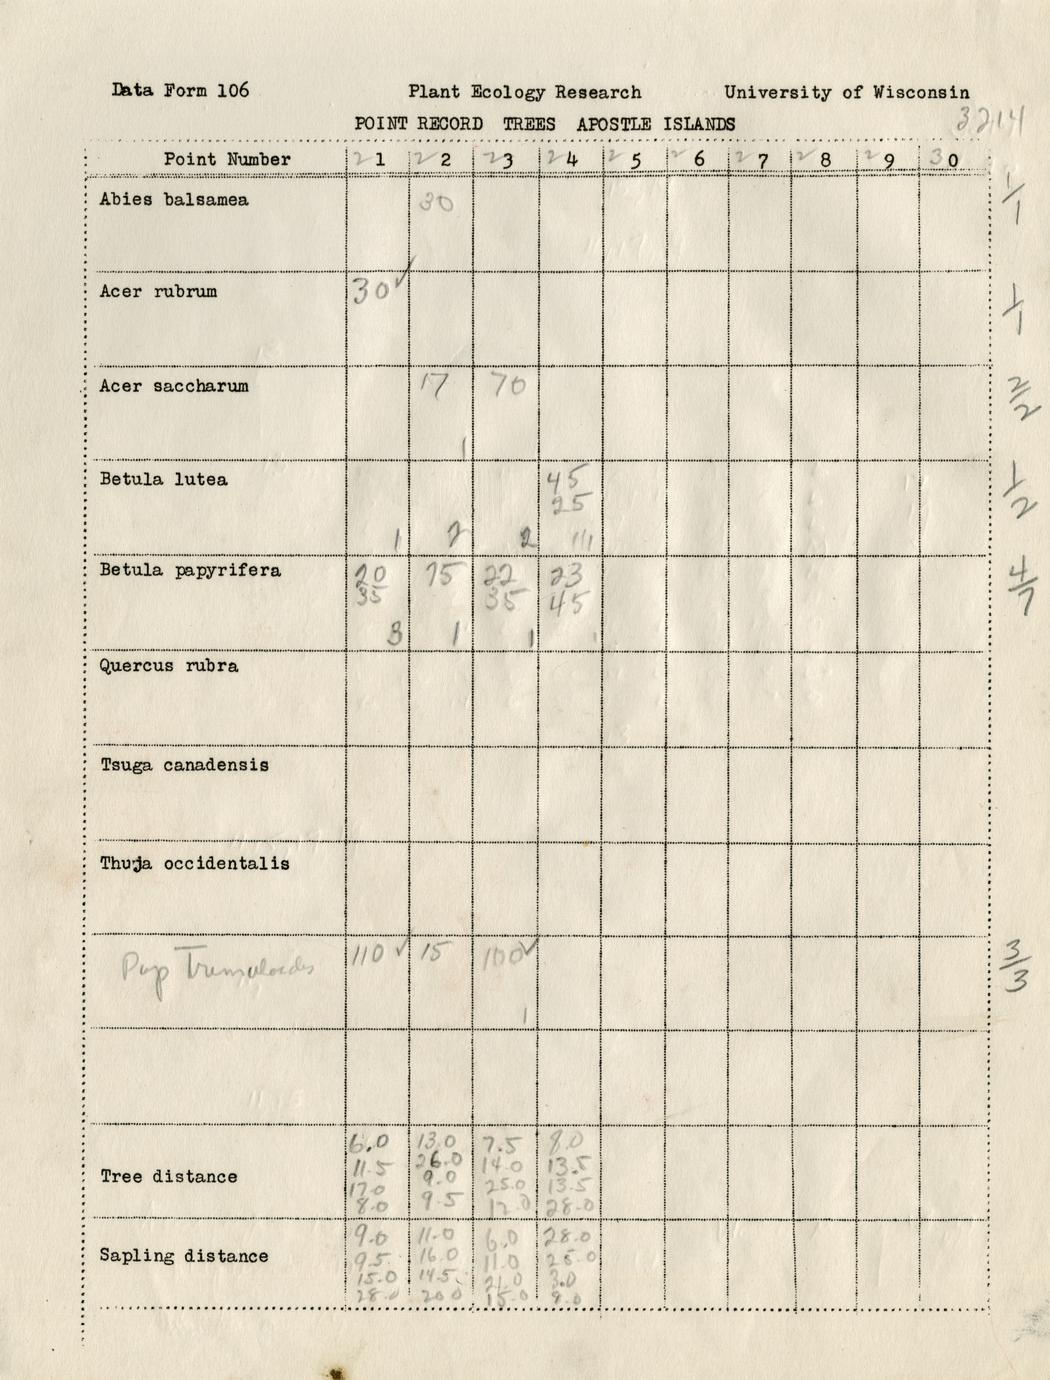 Data Form 106 Plant Ecology Research University of Wisconsin
POINT RECORD TREES APOSTLE ISLANDS 3214
Point Number 21 22 23 24 25 26 27 28 29 30
Abies balsamea 30 1/1
Acer rubrum 30✓ 1/1
Acer saccharum 17 70 2/2
1
Betula lutea 45 1/2
25
1 2 2 111
Betula papyrifera 20 15 22 23 4/7
35 35 45
3 1 1 1
Quercus rubra
Tsuga canadensis
Thuja occidentalis
Pop Tremuloides 110 ✓ 15 100✓ 3/3
1
6.0 13.0 7.5 8.0
11.5 26.0 14.0 13.5
Tree distance 17.0 9.0 25.0 13.5
8.0 9.5 12.0 28.0
9.0 11.0 6.0 28.0
Sapling distance 9.5 16.0 11.0 25.0
15.0 14.5 21.0 3.0
28.0 20.0 15.0 9.0